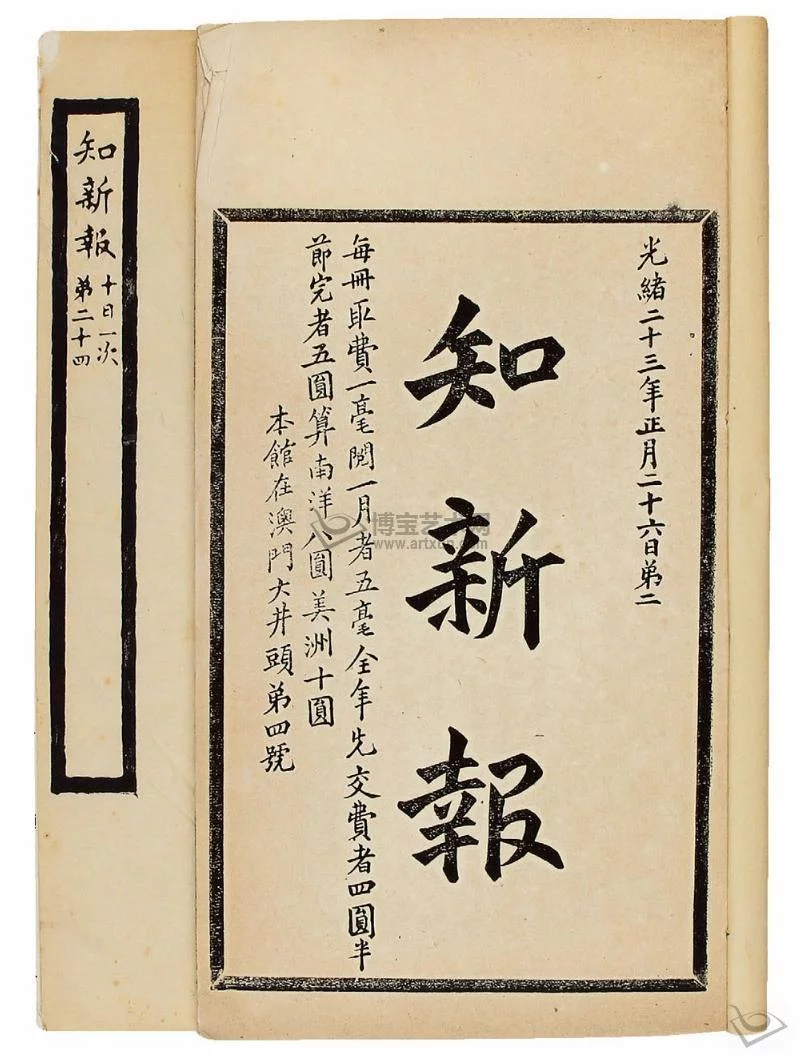 光緒二十三年正月二十六日第二
知新報
每冊取費一毫閱一月者五毫全年先交費者四圓半
節完者五圓算南洋八圓美洲十圓
本館在澳門大井頭第四號
知新報
十日一次
第二十四
博宝艺术网
www.artxun.com